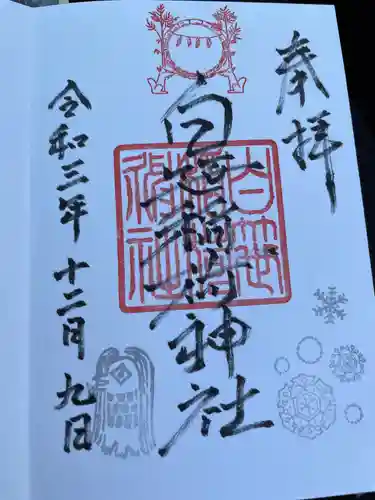 奉拝
白笹稲荷神社
令和三年十二月九日